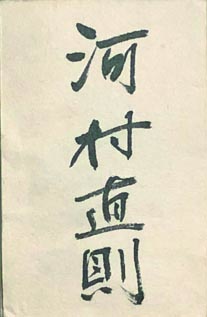 河村直則